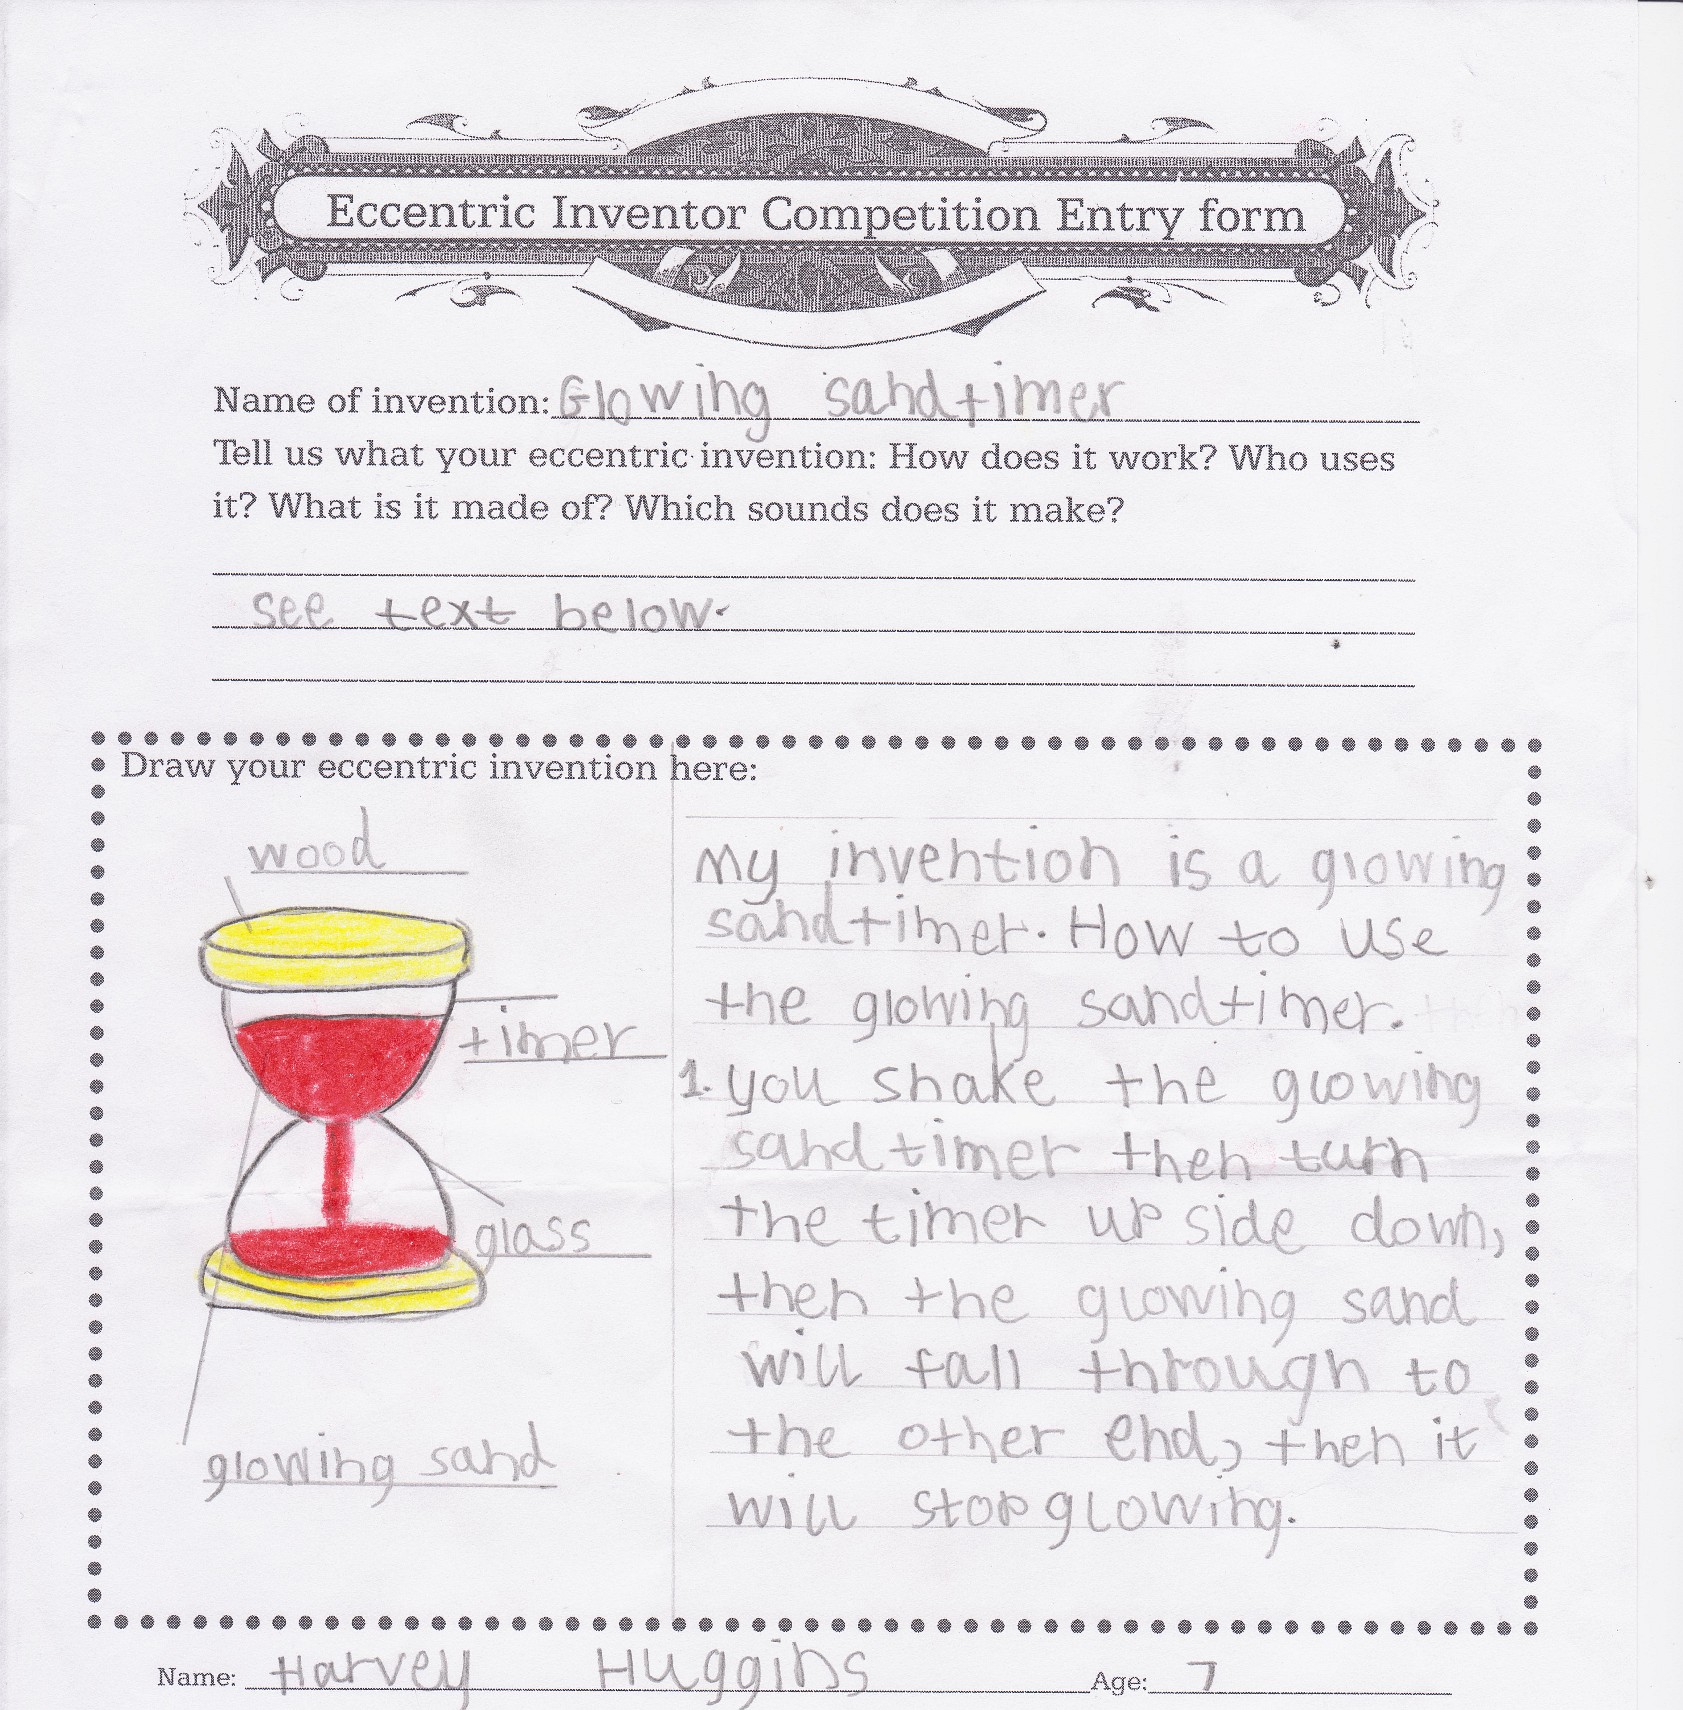 Eccentric Inventor Competition Entry form
Name of invention: Glowing sandtimer
Tell us what your eccentric invention: How does it work? Who uses
it? What is it made of? Which sounds does it make?
see text below.
Draw your eccentric invention here:
wood
timer
glass
glowing sand
My invention is a glowing
sandtimer. How to use
the glowing sandtimer.
1. you shake the glowing
sandtimer then turn
the timer up side down,
then the glowing sand
will fall through to
the other end, then it
will stop glowing.
Name: Harvey Huggins Age: 7